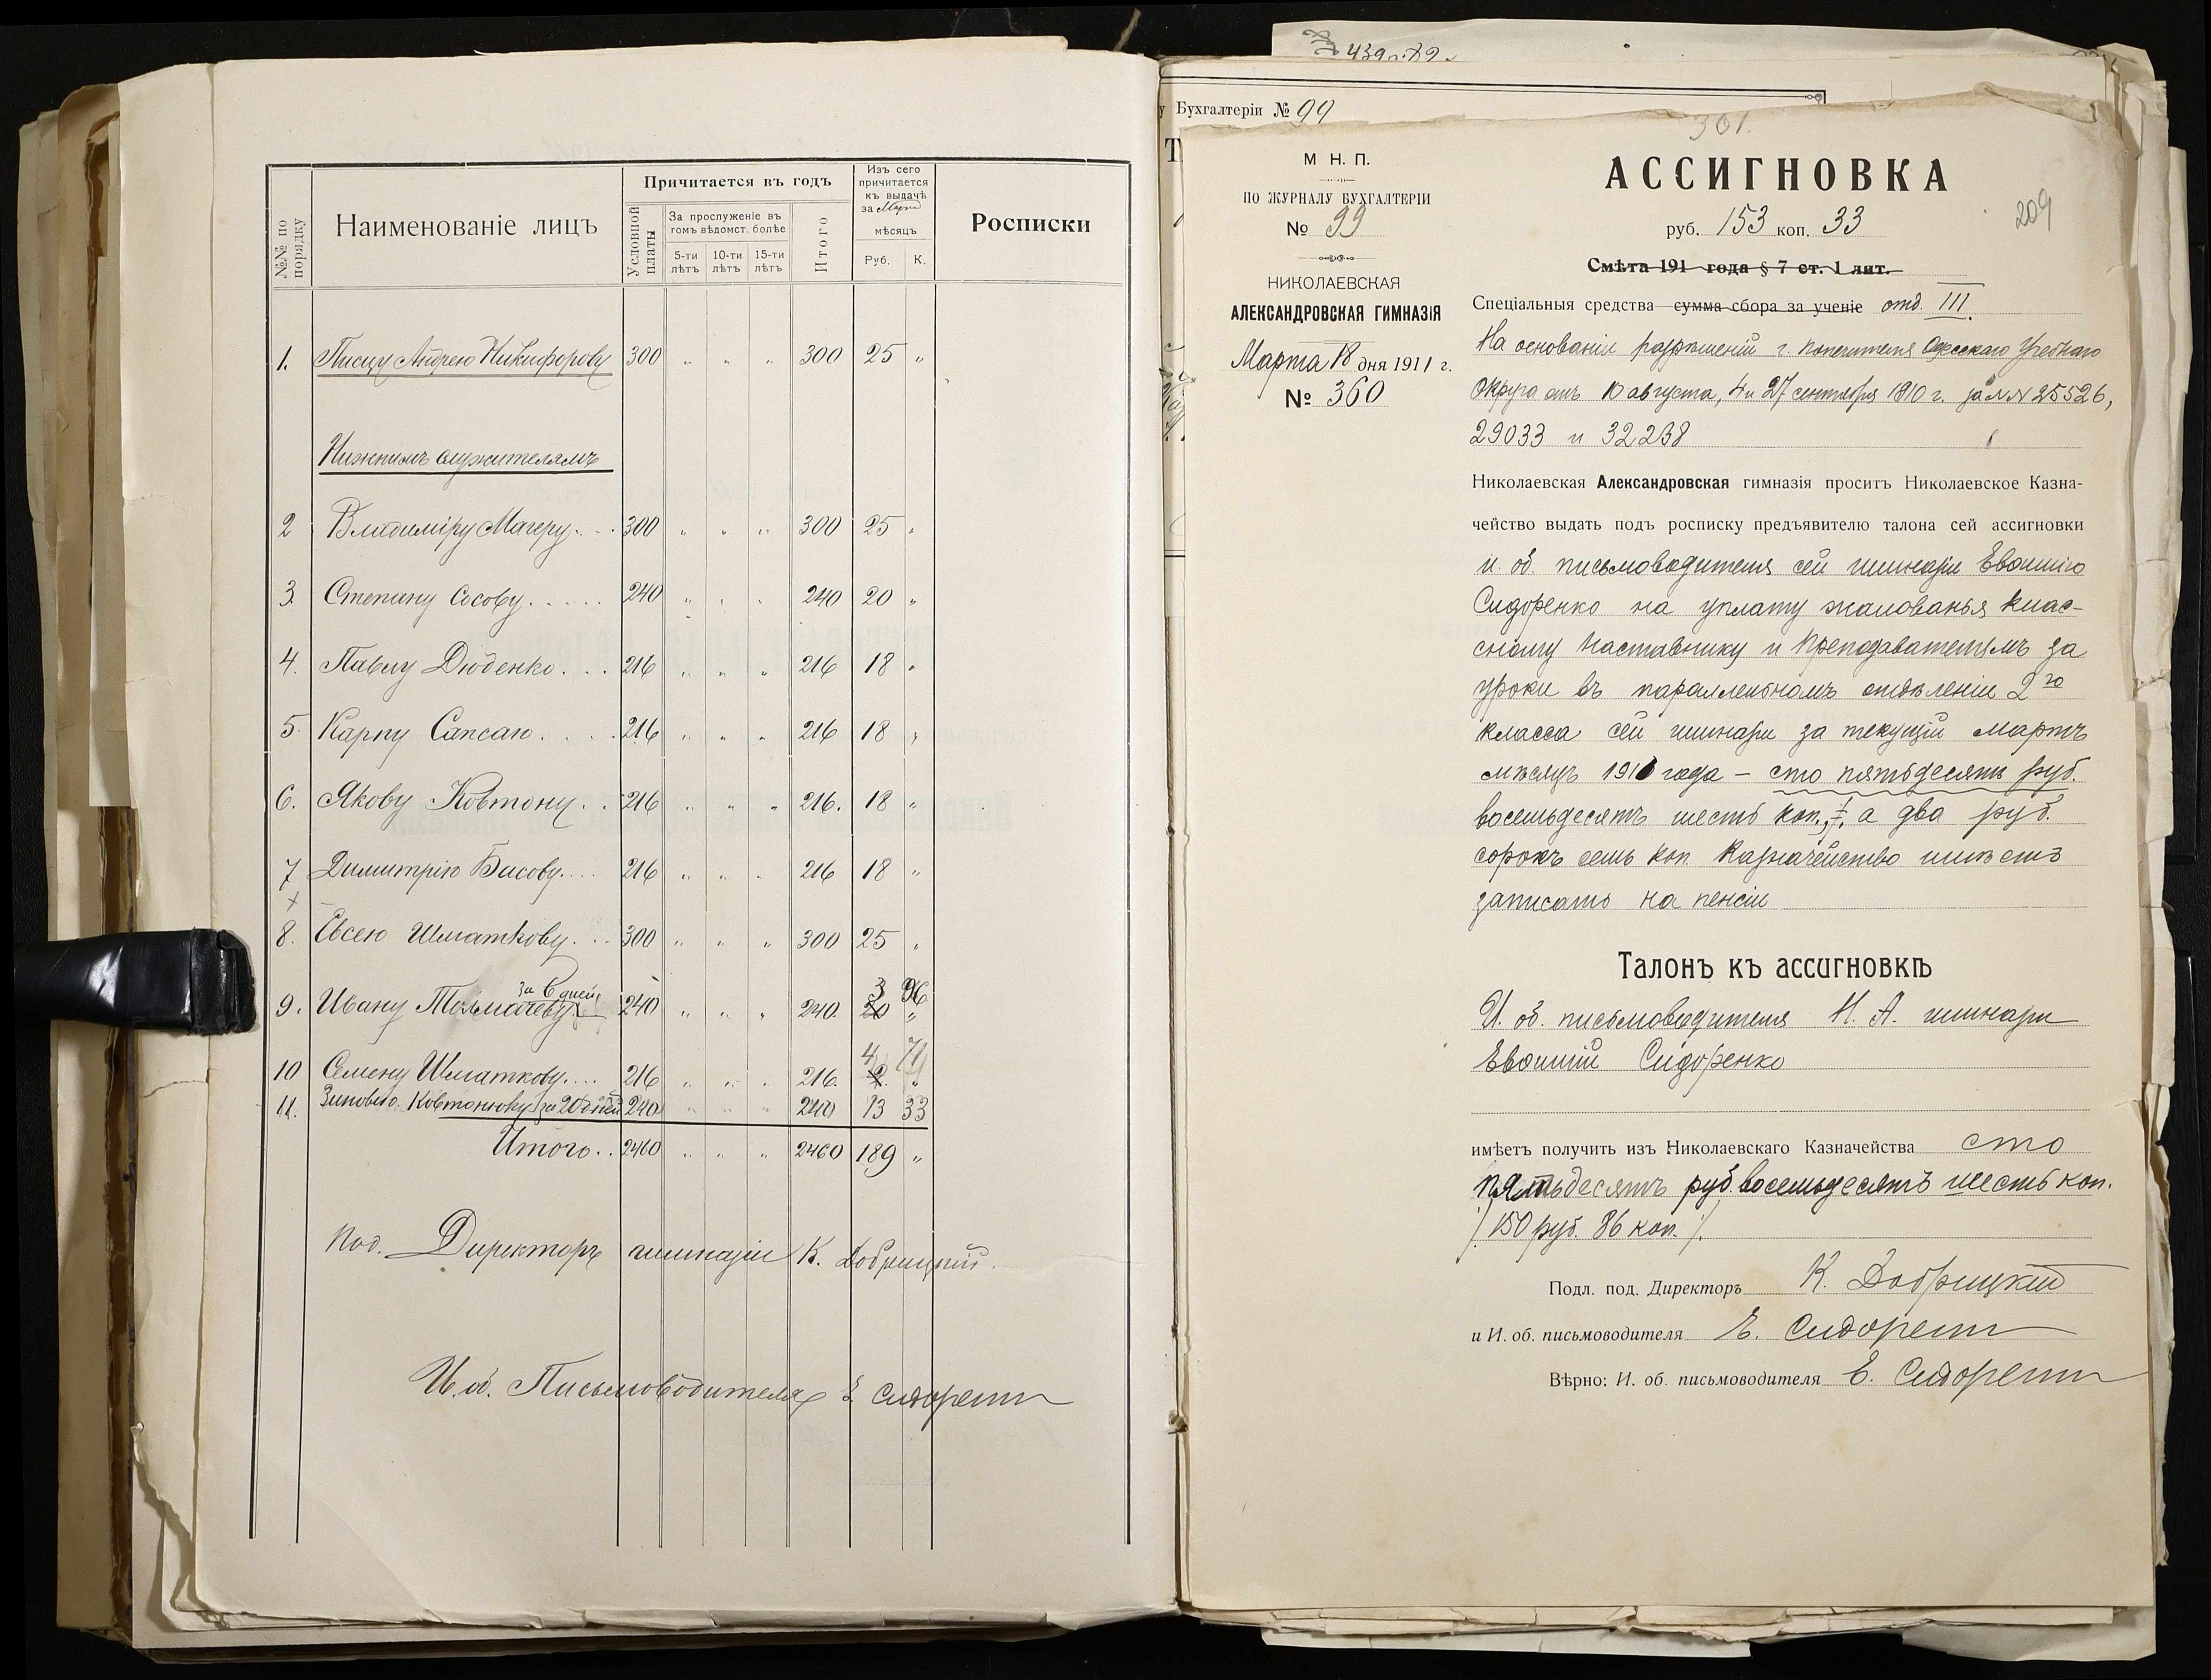 №№ по порядку
Наименованіе лицъ
Причитается въ годъ
Условной платы
За прослуженіе въ
гомъ вѣдомст. болѣе
5-ти лѣтъ
10-ти лѣтъ
15-ти лѣтъ
Итого
Изъ сего
причитается
къ выдачѣ
за Мартъ
мѣсяцъ
Руб. К.
Росписки
1. Писцу Андрею Никифорову 300 „ „ „ 300 25 „
Нижнимъ служителямъ
2 Владиміру Магеру. . . 300 „ „ „ 300 25 „
3. Степану Сосову. . . . . 240 „ „ „ 240 20 „
4. Павлу Дюденко . . . 216 „ „ „ 216 18 „
5. Карпу Сапсаю . . . . 216 „ „ „ 216 18 „
6. Якову Ковтону. . . 216 „ „ „ 216. 18 „
7 Димитрію Басову. . . . 216 „ „ „ 216 18 „
+
8. Евсею Шматкову. . . 300 „ „ „ 300 25 „
за 6 дней 3 96
9. Ивану Толмачеву 240 „ „ „ 240. 20 „
4 71
10 Семену Шматкову. . . . 216 „ „ „ 216.
11. Зиновію Ковтонюку за 20 дней 240 „ „ „ 240 13 33
Итого. . 2460 „ „ „ 2460 189 „
Под. Директоръ гимназіи К. Добрицкій.
И. об. Письмоводителя Е. Сидоренко
Бухгалтеріи № 99
301.
209
М. Н. П.
ПО ЖУРНАЛУ БУХГАЛТЕРІИ
№ 99
НИКОЛАЕВСКАЯ
АЛЕКСАНДРОВСКАЯ ГИМНАЗІЯ
Марта 18 дня 1911 г.
№ 360
АССИГНОВКА
руб. 153 коп. 33
Смѣта 191 года § 7 ст. 1 лит.
Спеціальныя средства сумма сбора за ученіе отд. III.
На основаніи разрѣшеній г. Попечителя Одесскаго Учебнаго
Округа отъ 10 августа, 4 и 27 сентября 1910 г. за №№ 25526,
29033 и 32238
Николаевская Александровская гимназія проситъ Николаевское Казна-
чейство выдать подъ росписку предъявителю талона сей ассигновки
и. об. письмоводителя сей гимназіи Евгенію
Сидоренко на уплату жалованья клас-
сному наставнику и преподавателямъ за
уроки въ параллельномъ отдѣленіи 2го
класса сей гимназіи за текущій мартъ
мѣсяцъ 1911 года – сто пятьдесятъ руб.
восемьдесятъ шесть коп., а два руб.
сорокъ семь коп. Казначейство имѣетъ
записать на пенсіи
Талонъ къ ассигновкѣ
И. об. письмоводителя Н. А. гимназіи
Евгеній Сидоренко
имѣетъ получить изъ Николаевскаго Казначейства сто
пятьдесятъ руб. восемьдесятъ шесть коп.
/150 руб. 86 коп./.
Подл. под. Директоръ К. Добрицкій
и И. об. письмоводителя Е. Сидоренко
Вѣрно: И. об. письмоводителя Е. Сидоренко